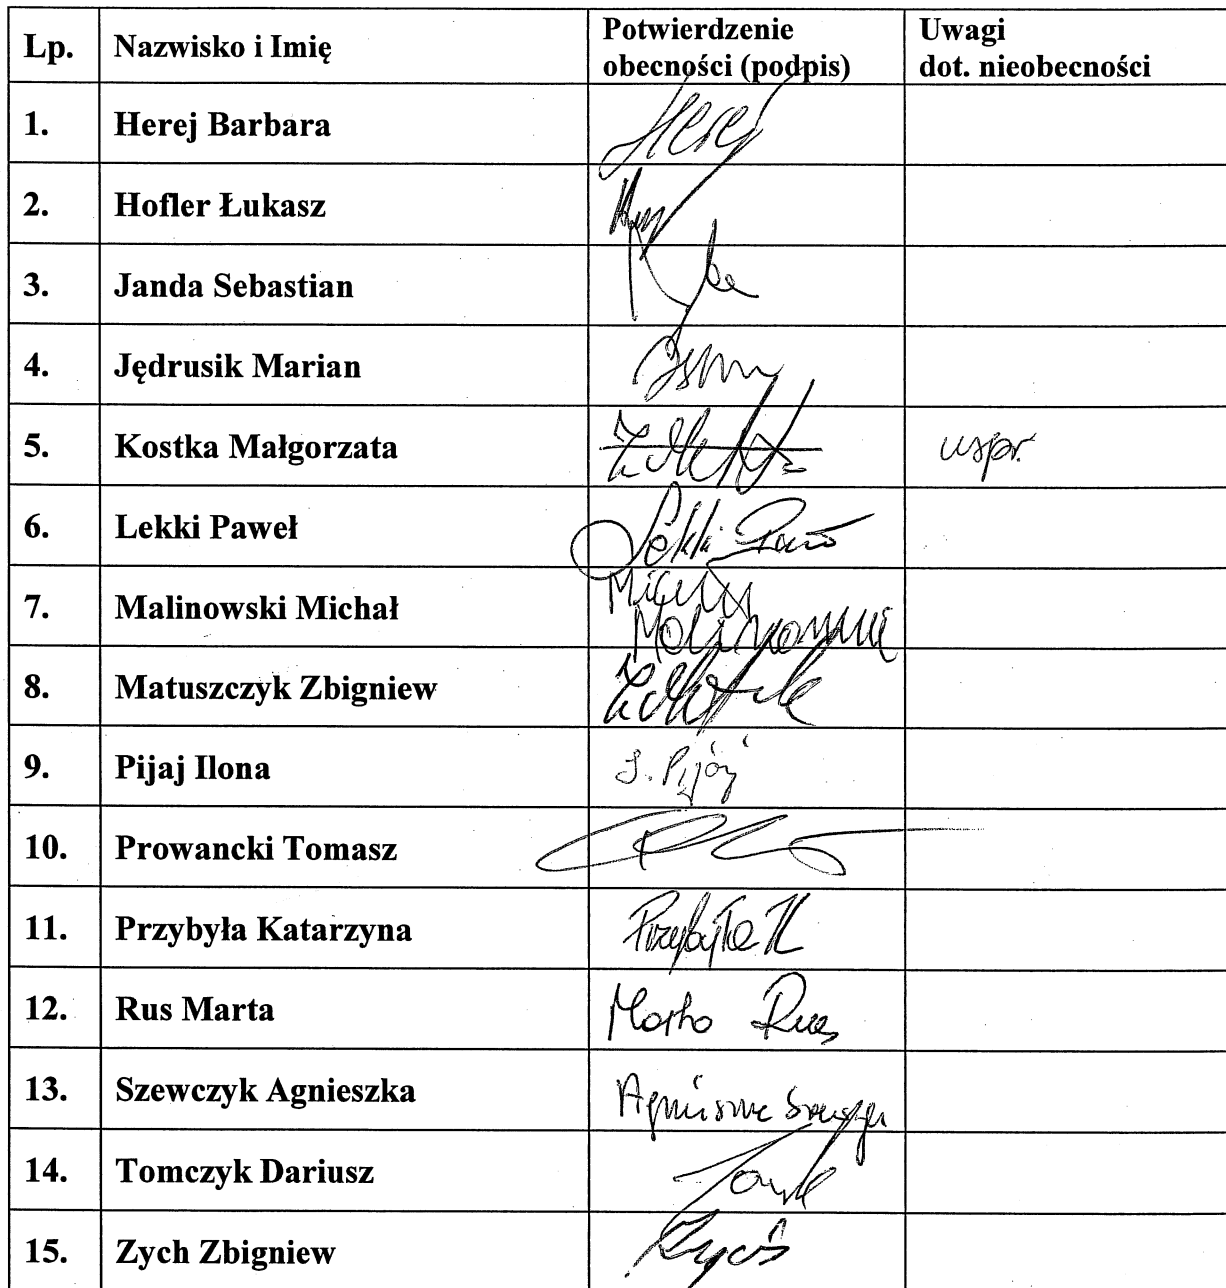 Lp. Nazwisko i Imię Potwierdzenie obecności (podpis) Uwagi dot. nieobecności
1. Herej Barbara Herej
2. Hofler Łukasz
3. Janda Sebastian
4. Jędrusik Marian
5. Kostka Małgorzata uspr.
6. Lekki Paweł Lekki Paweł
7. Malinowski Michał Michał Malinowski
8. Matuszczyk Zbigniew
9. Pijaj Ilona I. Pijaj
10. Prowancki Tomasz
11. Przybyła Katarzyna Przybyła K
12. Rus Marta Marta Rus
13. Szewczyk Agnieszka Agnieszka Szewczyk
14. Tomczyk Dariusz
15. Zych Zbigniew Zych